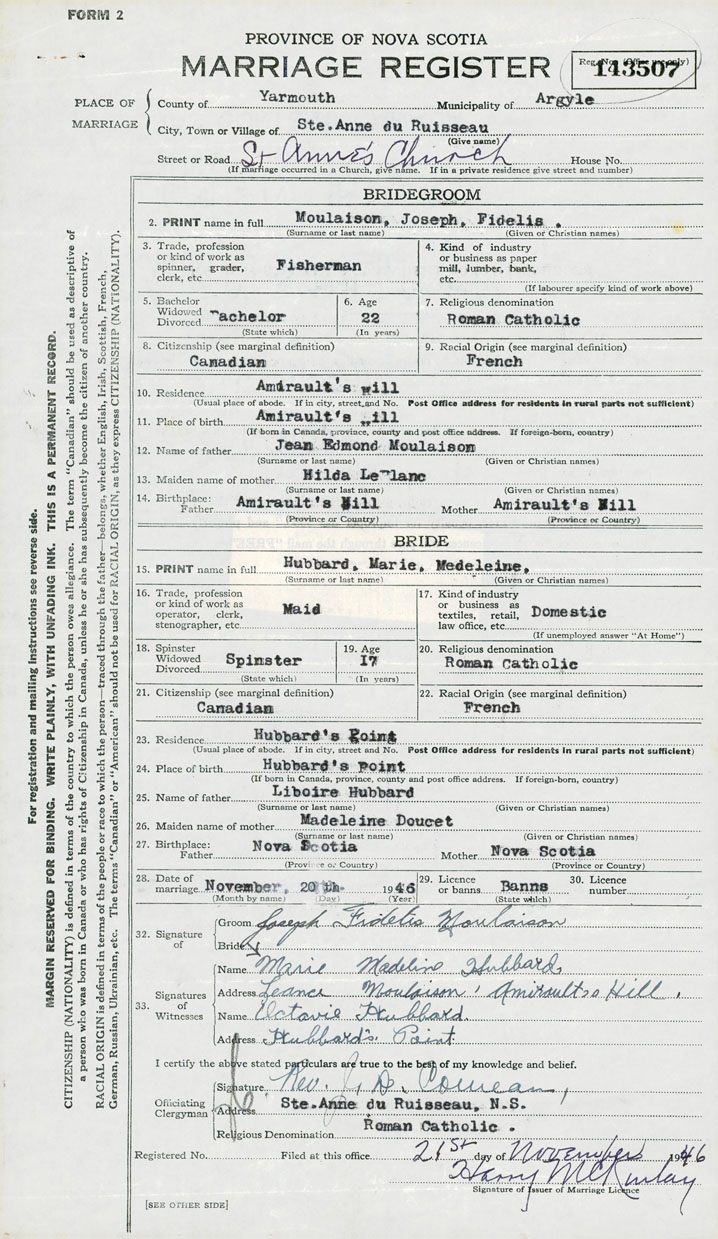 FORM 2
PROVINCE OF NOVA SCOTIA
MARRIAGE REGISTER
Reg. No. (Office use only)
143507
PLACE OF MARRIAGE
County of Yarmouth Municipality of Argyle
City, Town or Village of Ste.Anne du Ruisseau
(Give name)
Street or Road St Anne's Church House No.
(If marriage occurred in a Church, give name. If in a private residence give street and number)
BRIDEGROOM
2. PRINT name in full Moulaison, Joseph, Fidelis .
(Surname or last name) (Given or Christian names)
3. Trade, profession or kind of work as spinner, grader, clerk, etc. Fisherman
4. Kind of industry or business as paper mill, lumber, bank, etc.
(If labourer specify kind of work above)
5. Bachelor Widowed Divorced Bachelor
(State which)
6. Age 22
(In years)
7. Religious denomination
Roman Catholic
8. Citizenship (see marginal definition)
Canadian
9. Racial Origin (see marginal definition)
French
10. Residence Amirault's Hill
(Usual place of abode. If in city, street and No. Post Office address for residents in rural parts not sufficient)
11. Place of birth Amirault's Hill
(If born in Canada, province, county and post office address. If foreign-born, country)
12. Name of father Jean Edmond Moulaison
(Surname or last name) (Given or Christian names)
13. Maiden name of mother Hilda LeBlanc
(Surname or last name) (Given or Christian names)
14. Birthplace: Father Amirault's Hill Mother Amirault's Hill
(Province or Country) (Province or Country)
BRIDE
15. PRINT name in full Hubbard, Marie, Medeleine,
(Surname or last name) (Given or Christian names)
16. Trade, profession or kind of work as operator, clerk, stenographer, etc. Maid
17. Kind of industry or business as textiles, retail, law office, etc. Domestic
(If unemployed answer "At Home")
18. Spinster Widowed Divorced Spinster
(State which)
19. Age 17
(In years)
20. Religious denomination
Roman Catholic
21. Citizenship (see marginal definition)
Canadian
22. Racial Origin (see marginal definition)
French
23. Residence Hubbard's Point
(Usual place of abode. If in city, street and No. Post Office address for residents in rural parts not sufficient)
24. Place of birth Hubbard's Point
(If born in Canada, province, county and post office address. If foreign-born, country)
25. Name of father Liboire Hubbard
(Surname or last name) (Given or Christian names)
26. Maiden name of mother Madeleine Doucet
(Surname or last name) (Given or Christian names)
27. Birthplace: Father Nova Scotia Mother Nova Scotia
(Province or Country) (Province or Country)
28. Date of marriage November, 20th 1946
(Month by name) (Day) (Year)
29. Licence or banns Banns
(State which)
30. Licence number
32. Signature of
Groom Joseph Fidelis Moulaison
Bride
33. Signatures of Witnesses
Name Marie Madeline Hubbard
Address Leance Moulaison, Amiraults Hill.
Name Octavie Hubbard.
Address Hubbard's Point
I certify the above stated particulars are true to the best of my knowledge and belief.
Officiating Clergyman
Signature Rev. J. D. Comeau,
Address Ste.Anne du Ruisseau, N.S.
Religious Denomination Roman Catholic .
Registered No. Filed at this office 21st day of November 1946
Harry McKinlay
Signature of Issuer of Marriage Licence
[SEE OTHER SIDE]
For registration and mailing instructions see reverse side.
MARGIN RESERVED FOR BINDING. WRITE PLAINLY, WITH UNFADING INK. THIS IS A PERMANENT RECORD.
CITIZENSHIP (NATIONALITY) is defined in terms of the country to which the person owes allegiance. The term "Canadian" should be used as descriptive of
a person who was born in Canada or who has rights of Citizenship in Canada, unless he or she has subsequently become the citizen of another country.
RACIAL ORIGIN is defined in terms of the people or race to which the person—traced through the father—belongs, whether English, Irish, Scottish, French,
German, Russian, Ukrainian, etc. The terms "Canadian" or "American" should not be used for RACIAL ORIGIN, as they express CITIZENSHIP (NATIONALITY).